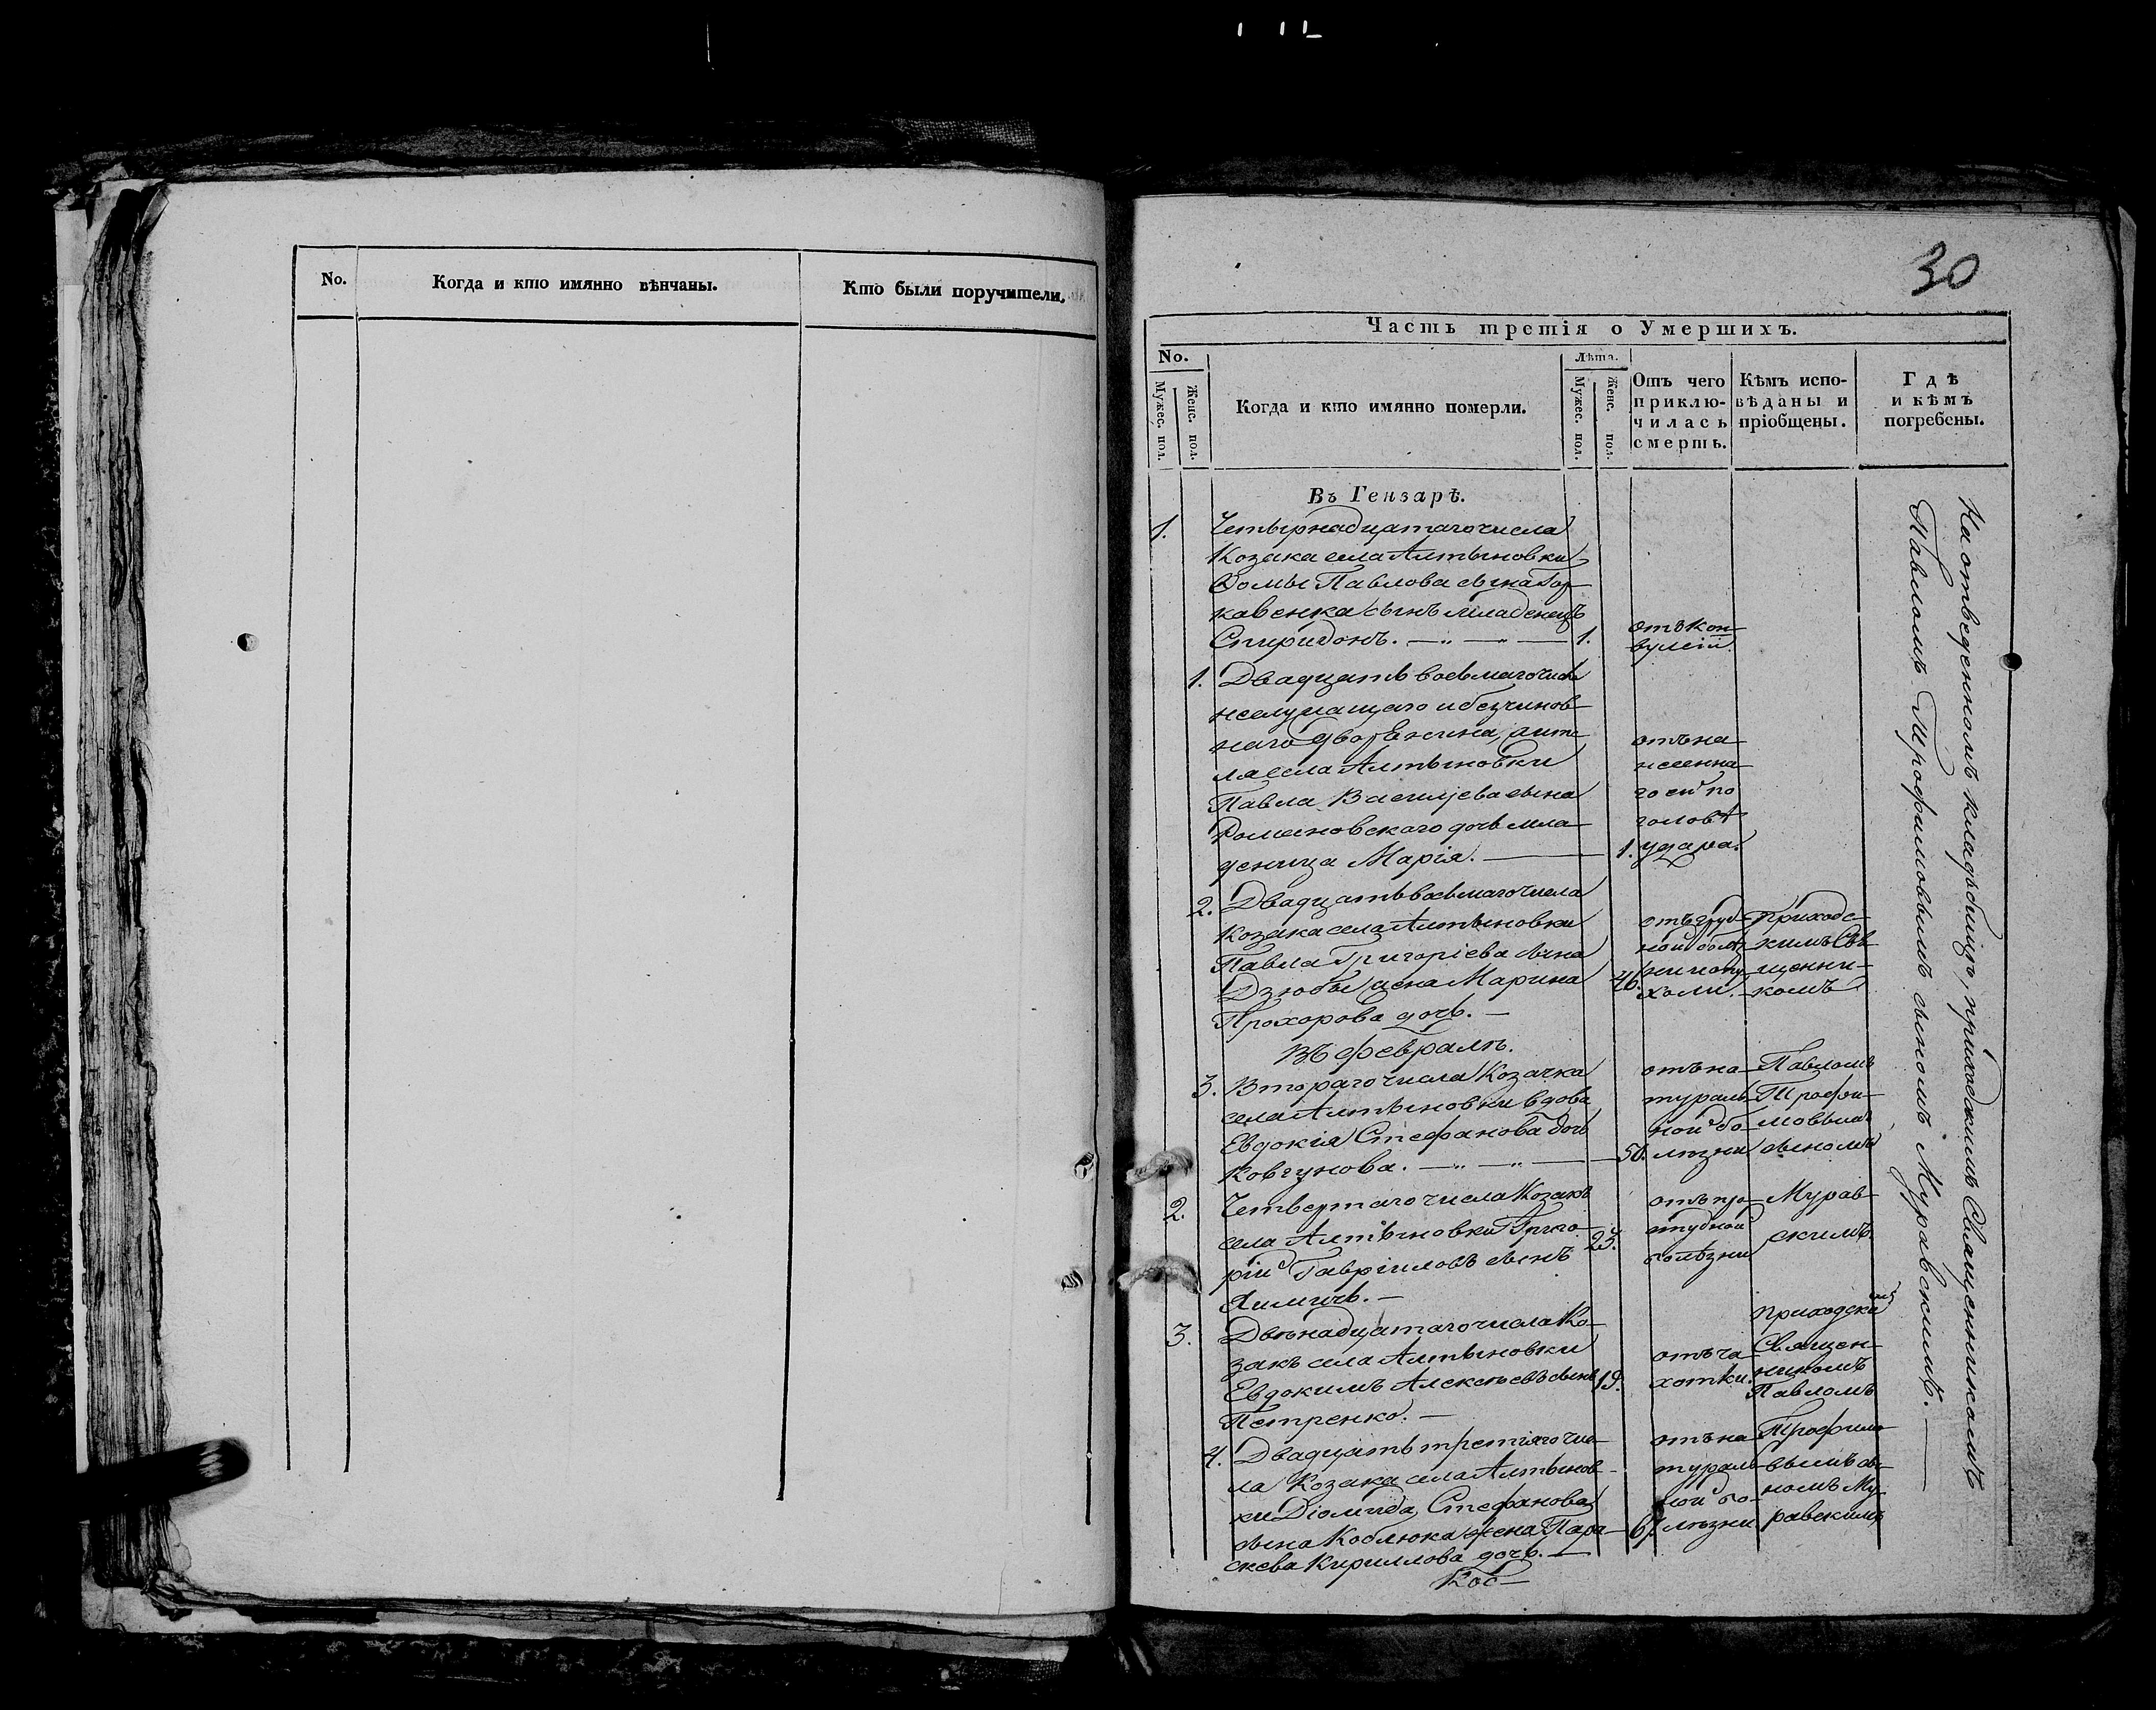 No.
Когда и кто имянно вѣнчаны.
Кто были поручители.
30
Часть третія о Умершихъ.
No.
Мужес. пол.
Женс. пол.
Когда и кто имянно померли.
Лѣта.
Мужес. пол.
Женс. пол.
Отъ чего
приклю-
чилась
смерть.
Кѣмъ испо-
вѣданы и
пріобщены.
Гдѣ
и кѣмъ
погребены.
Въ Генварѣ.
1. Четырнадцатаго числа
Козака села Алтыновки
Ѳомы Павлова сына
кавенка сынъ младенецъ
Спиридонъ. 1.
отъ кон-
вулсіи.
1. Двадцать восьмаго числа
неслужащаго и безчинов-
наго дворянина, жите-
ля села Алтыновки
Павла Васильева сына
Романовскаго дочь мла-
деница Марія. 1.
отъ на-
несенна-
го ей по
головѣ
удара.
2. Двадцать восьмаго числа
Козака села Алтыновки
Павла Григоріева сына
Дзюбы жена Марина 46.
Прохорова дочь.
отъ груд-
ной болѣз-
ни и опу-
холи.
Приходс-
кимъ Свя-
щенни-
комъ
Въ Февралѣ.
3. Втораго числа Козачка
села Алтыновки вдова
Евдокія Стефанова дочь
Ковгунова. 50.
отъ на-
тураль-
ной бо-
лѣзни
Павломъ
Трофи-
мовымъ
сыномъ
2. Четвертаго числа Козакъ
села Алтыновки Григо-
рій Гавріиловъ сынъ 23.
Химичъ.
отъ про-
студной
болѣзни
Мурав-
скимъ.
3. Двѣнадцатаго числа Ко-
закъ села Алтыновки
Евдокимъ Алексѣевъ сынъ 19.
Петренко.
отъ ча-
хотки.
Приходскимъ
Священ-
никомъ
Павломъ
4. Двадцать третіяго чис-
ла Козака села Алтынов-
ки Діомида Стефанова
сына Коблюка жена Пара-
скева Кириллова дочь.
отъ на-
тураль-
ной бо-
лѣзни
Трофимо-
вымъ сы-
номъ Му-
равскимъ
Коз-
На отведенномъ кладбищѣ, приходскимъ Священникомъ
Павломъ Трофимовымъ сыномъ Муравскимъ.